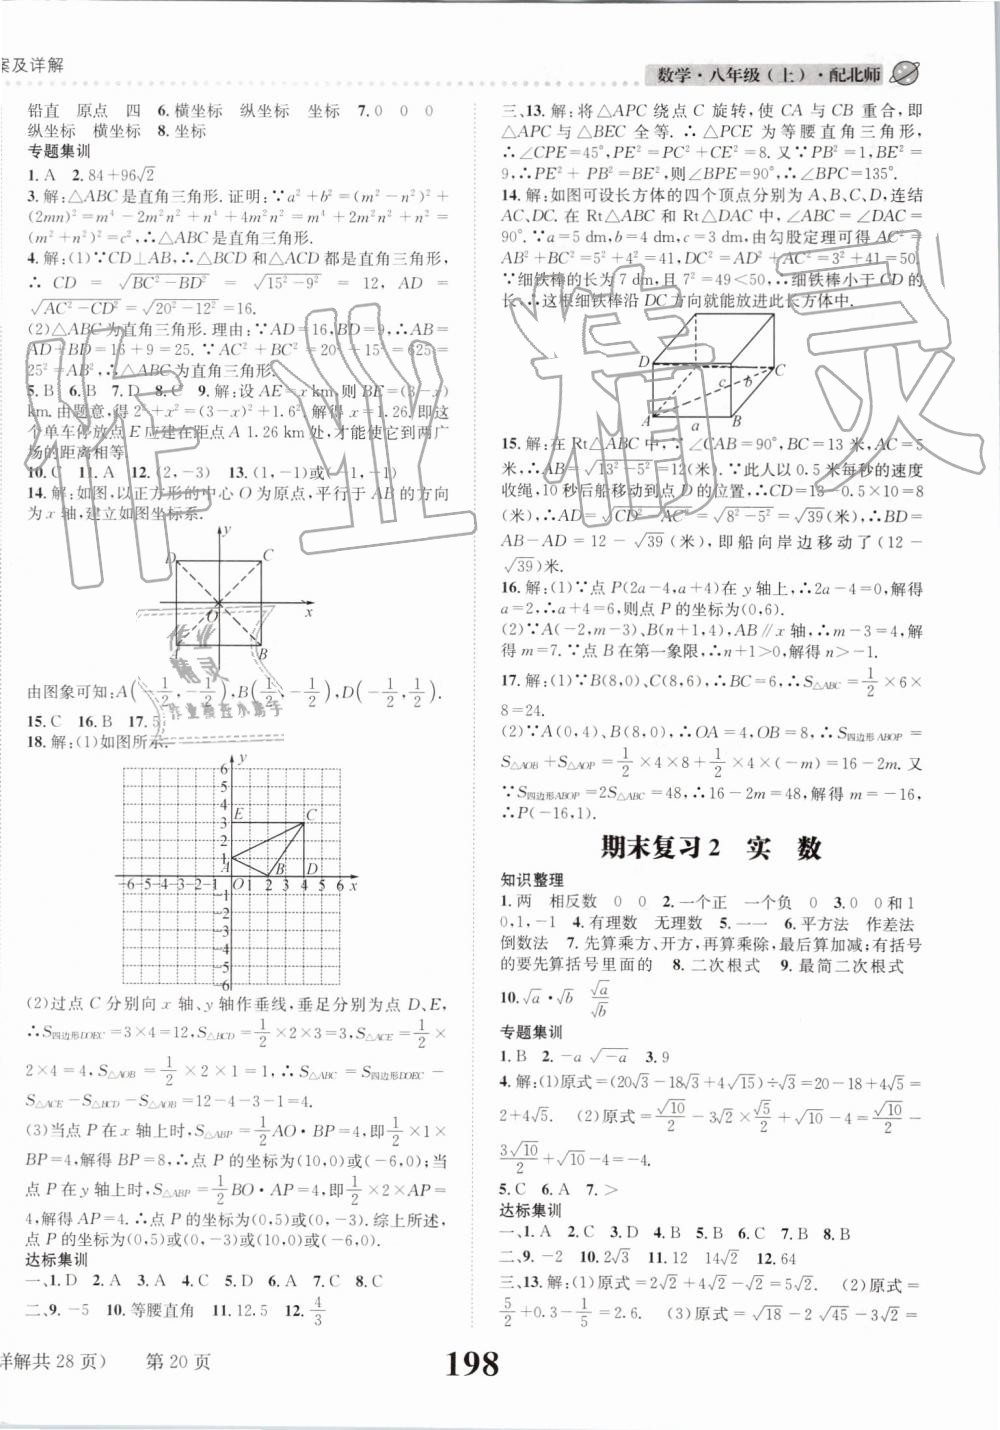 案及详解
数学·八年级（上）·配北师
铅直　原点　四　6.横坐标　纵坐标　坐标　7.0　0　0
纵坐标　横坐标　8.坐标
专题集训
1.A　2.84+96√2
3.解:△ABC是直角三角形.证明:∵a²+b²=(m²-n²)²+
(2mn)²=m⁴-2m²n²+n⁴+4m²n²=m⁴+2m²n²+n⁴=
(m²+n²)²=c²,∴△ABC是直角三角形.
4.解:(1)∵CD⊥AB,∴△BCD和△ACD都是直角三角形,
∴CD=√(BC²-BD²)=√(15²-9²)=12,AD=
√(AC²-CD²)=√(20²-12²)=16.
(2)△ABC为直角三角形.理由:∵AD=16,BD=9,∴AB=
AD+BD=16+9=25.∵AC²+BC²=20²+15²=625=
25²=AB²,∴△ABC为直角三角形.
5.B　6.B　7.D　8.C　9.解:设AE=x km,则BE=(3-x)
km.由题意,得2²+x²=(3-x)²+1.6².解得x=1.26.即这
个单车停放点E应建在距点A 1.26 km处,才能使它到两广
场的距离相等.
10.C　11.A　12.(2,-3)　13.(1,-1)或(-1,-1)
14.解:如图,以正方形的中心O为原点,平行于AB的方向
为x轴,建立如图坐标系.
y
D　C
O　x
A　B
由图象可知:A(-1/2,-1/2),B(1/2,-1/2),D(-1/2,1/2).
15.C　16.B　17.5
18.解:(1)如图所示.
y
6
5
4
E　3　C
2
1
A　B　D
-6-5-4-3-2-1 O 1 2 3 4 5 6 x
-1
-2
-3
-4
-5
-6
(2)过点C分别向x轴、y轴作垂线,垂足分别为点D、E,
∴S四边形DOEC=3×4=12,S△BCD=1/2×2×3=3,S△ACE=1/2×
2×4=4,S△AOB=1/2×2×1=1,∴S△ABC=S四边形DOEC-
S△ACE-S△BCD-S△AOB=12-4-3-1=4.
(3)当点P在x轴上时,S△ABP=1/2AO·BP=4,即1/2×1×
BP=4,解得BP=8,∴点P的坐标为(10,0)或(-6,0);当
点P在y轴上时,S△ABP=1/2BO·AP=4,即1/2×2×AP=
4,解得AP=4.∴点P的坐标为(0,5)或(0,-3).综上所述,
点P的坐标为(0,5)或(0,-3)或(10,0)或(-6,0).
达标集训
一、1.D　2.A　3.C　4.C　5.D　6.C　7.C　8.C
二、9.-5　10.等腰直角　11.12.5　12.4/3
三、13.解:将△APC绕点C旋转,使CA与CB重合,即
△APC与△BEC全等.∴△PCE为等腰直角三角形,
∴∠CPE=45°,PE²=PC²+CE²=8.又∵PB²=1,BE²=
9,∴PE²+PB²=BE²,则∠BPE=90°,∴∠BPC=135°.
14.解:如图可设长方体的四个顶点分别为A、B、C、D,连结
AC、DC.在Rt△ABC和Rt△DAC中,∠ABC=∠DAC=
90°.∵a=5 dm,b=4 dm,c=3 dm,由勾股定理可得AC²=
AB²+BC²=5²+4²=41,DC²=AD²+AC²=3²+41=50.
∵细铁棒的长为7 dm,且7²=49<50,∴细铁棒小于CD的
长,∴这根细铁棒沿DC方向就能放进此长方体中.
D　C
c　b
A　a　B
15.解:在Rt△ABC中,∵∠CAB=90°,BC=13米,AC=5
米,∴AB=√(13²-5²)=12(米).∵此人以0.5米每秒的速度
收绳,10秒后船移动到点D的位置,∴CD=13-0.5×10=8
(米),∴AD=√(CD²-AC²)=√(8²-5²)=√39(米),∴DB=
AB-AD=12-√39(米),即船向岸边移动了(12-
√39)米.
16.解:(1)∵点P(2a-4,a+4)在y轴上,∴2a-4=0,解得
a=2,∴a+4=6,则点P的坐标为(0,6).
(2)∵A(-2,m-3)、B(n+1,4),AB∥x轴,∴m-3=4,解
得m=7.∵点B在第一象限,∴n+1>0,解得n>-1.
17.解:(1)∵B(8,0)、C(8,6),∴BC=6,∴S△ABC=1/2×6×
8=24.
(2)∵A(0,4)、B(8,0),∴OA=4,OB=8,∴S四边形ABOP=
S△AOB+S△AOP=1/2×4×8+1/2×4(-m)=16-2m.又
∵S四边形ABOP=2S△ABC=48,∴16-2m=48,解得m=-16,
∴P(-16,1).
期末复习2　实　数
知识整理
1.两　相反数　0　0　2.一个正　一个负　0　3.0　0和1
0,1,-1　4.有理数　无理数　5.一一　6.平方法　作差法
倒数法　7.先算乘方、开方,再算乘除,最后算加减;有括号
的要先算括号里面的　8.二次根式　9.最简二次根式
10.√a·√b　√a/√b
专题集训
1.B　2.-a√-a　3.9
4.解:(1)原式=(20√3-18√3+4√15)÷√3=2√3÷√3+4√15÷√3=
2+4√5.　(2)原式=√10/2-3√2×√5/2+√10-4=√10/2-
3√10/2+√10-4=-4.
5.C　6.A　7.>
达标集训
一、1.A　2.C　3.D　4.B　5.C　6.B　7.B　8.D
二、9.-2　10.2√3　11.12　14√2　12.64
三、13.解:(1)原式=2√2+4√2-√2=5√2.　(2)原式=
5/2+0.3-1/5=2.6.　(3)原式=√18-2√45-3√2=
详解共28页）　第20页
198
作业精灵
作业
精灵
作业检查小助手